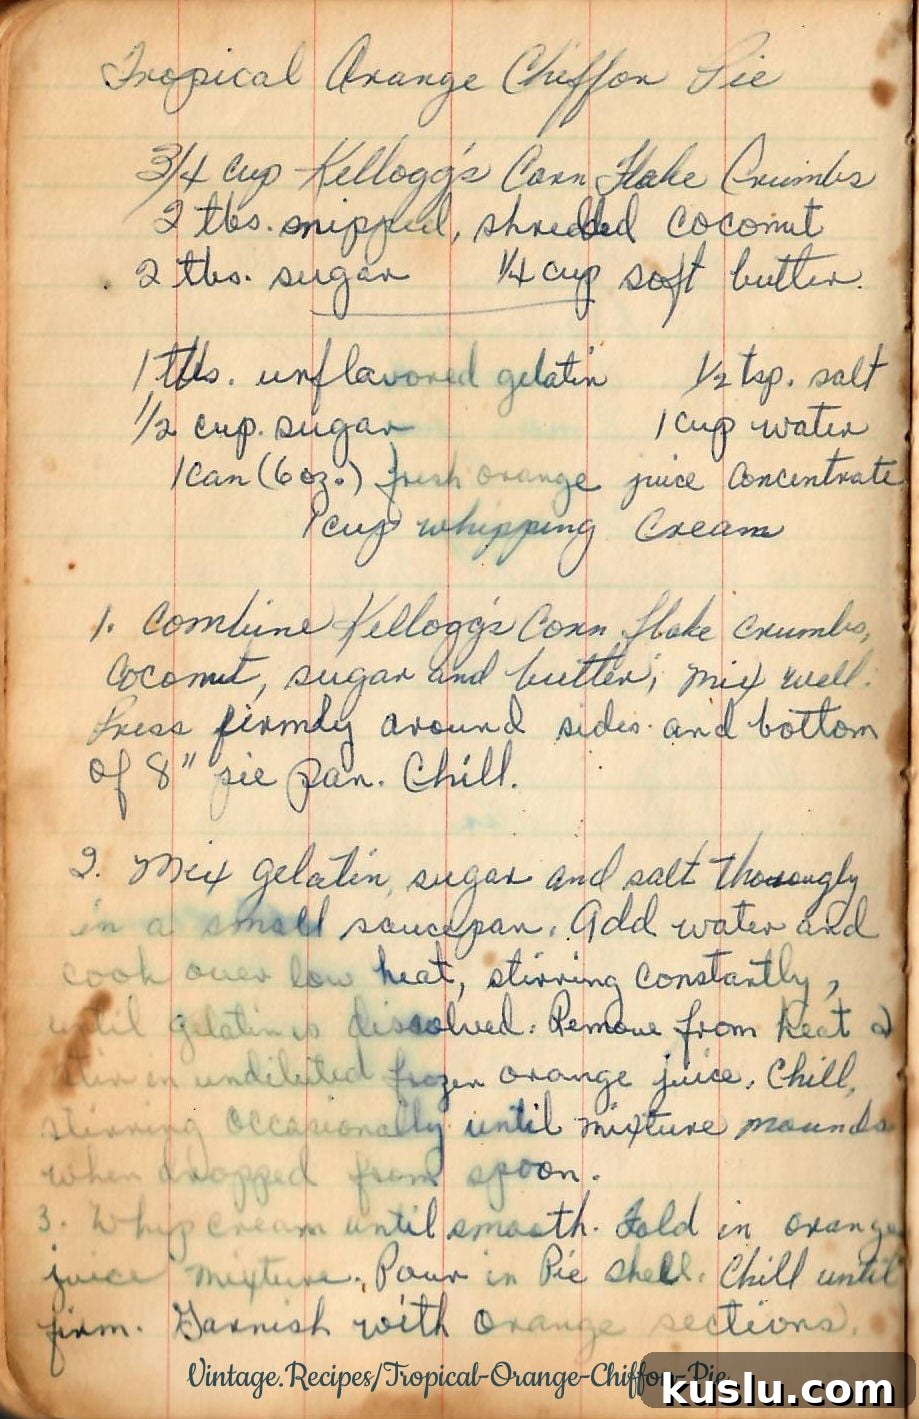 Tropical Orange Chiffon Pie
3/4 cup Kellogg's Corn Flake Crumbs
2 tbs. snipped, shredded coconut
2 tbs. sugar 1/4 cup soft butter.
1 tbs. unflavored gelatin 1/2 tsp. salt
1/2 cup. sugar 1 cup water
1 can (6 oz.) fresh orange juice concentrate
1 cup whipping cream
1. Combine Kellogg's Corn Flake crumbs,
coconut, sugar and butter; mix well.
Press firmly around sides and bottom
of 8" pie pan. Chill.
2. Mix gelatin, sugar and salt thorougly
in a small saucepan. Add water and
cook over low heat, stirring constantly,
until gelatin is dissolved. Remove from heat &
stir in undiluted frozen orange juice. Chill,
stirring occasionally until mixture mounds
when dropped from spoon.
3. Whip cream until smooth. Fold in orange
juice mixture. Pour in Pie shell. Chill until
firm. Garnish with orange sections.
Vintage.Recipes/Tropical-Orange-Chiffon-Pie
kuslu.com